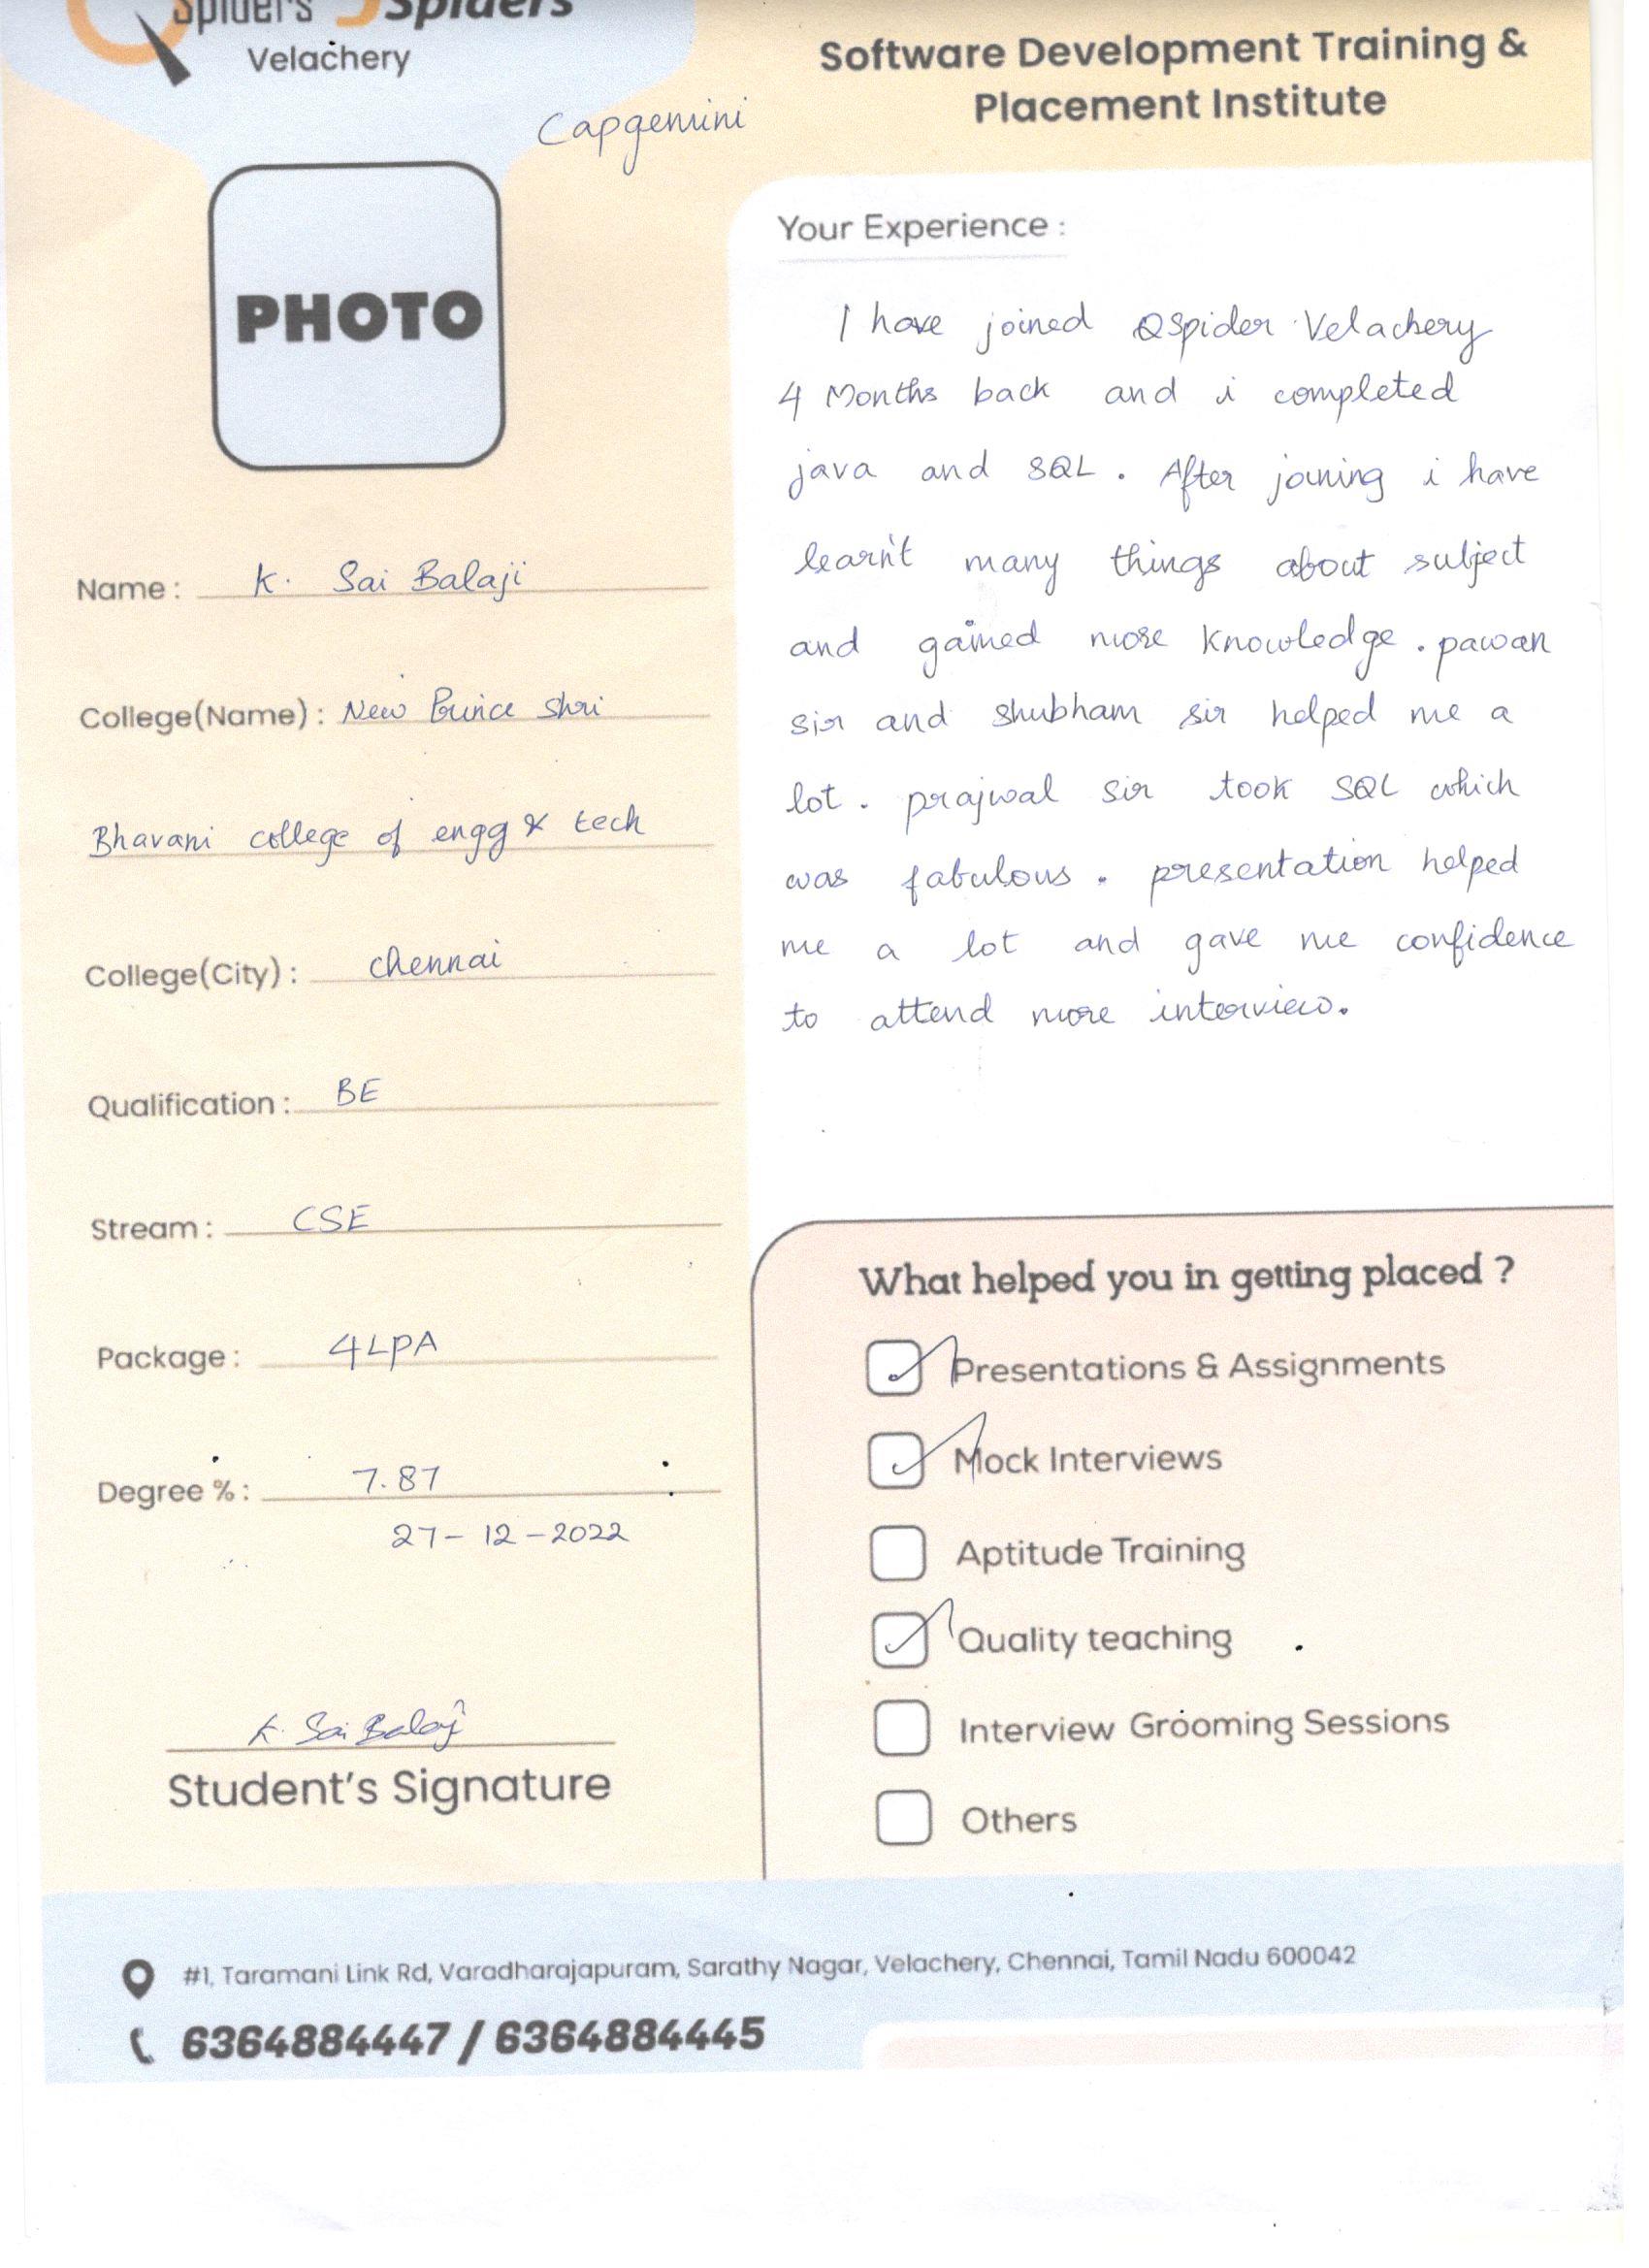 Spiders Spiders
Velachery
Software Development Training &
Placement Institute
Capgemini
PHOTO
Name : K. Sai Balaji
College(Name) : New Prince Shri
Bhavani college of engg & tech
College(City) : chennai
Qualification : BE
Stream : CSE
Package : 4LPA
Degree % : 7.87
27-12-2022
K. Sai Balaji
Student's Signature
Your Experience :
I have joined QSpider Velachery
4 Months back and i completed
java and SQL. After joining i have
learn't many things about subject
and gained more knowledge. pawan
sir and shubham sir helped me a
lot. prajwal sir took SQL which
was fabulous. presentation helped
me a lot and gave me confidence
to attend more interview.
What helped you in getting placed ?
Presentations & Assignments
Mock Interviews
Aptitude Training
Quality teaching
Interview Grooming Sessions
Others
#1, Taramani Link Rd, Varadharajapuram, Sarathy Nagar, Velachery, Chennai, Tamil Nadu 600042
6364884447 / 6364884445